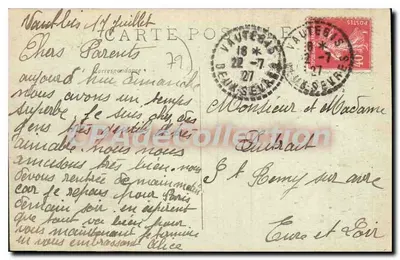 CARTE POSTALE
Vautebis 17 juillet
79
Chers Parents
aujourd'hui dimanche
nous avons un temps
superbe. Je suis chez des
gens
aimable. nous nous
amusons très bien. nous
devons rentrée demain matin
car je repars pour Paris
demain soir. en espérent
que tout va bien pour
vous maintenant je termine
en vous embrassant Alice
VAUTEBIS
18 *
22 - 7
27
DEUX-SEVRES
VAUTEBIS
27
DEUX-SEVRES
Monsieur et Madame
St Remy sur avre
Eure et Loir
APdeCollection